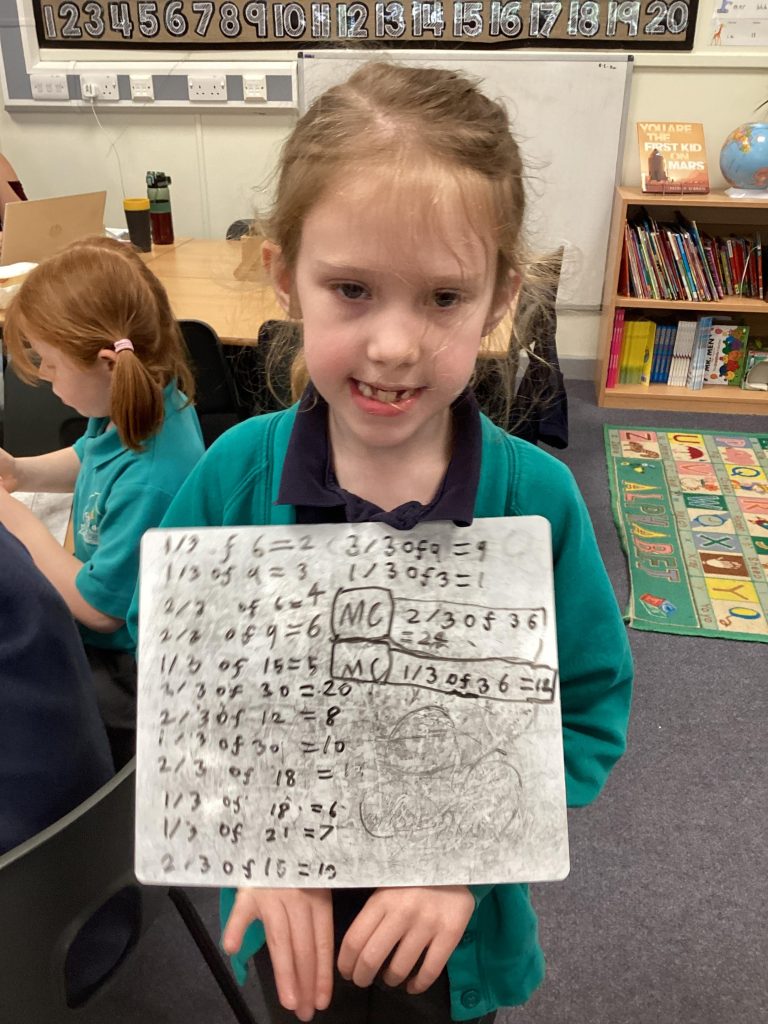 1 2 3 4 5 6 7 8 9 10 11 12 13 14 15 16 17 18 19 20
YOU ARE
THE
FIRST KID
ON
MARS
MR. MEN
ALPHABET
1/3 of 6 = 2
1/3 of 9 = 3
2/3 of 6 = 4
2/3 of 9 = 6
1/3 of 15 = 5
2/3 of 30 = 20
2/3 of 12 = 8
1/3 of 30 = 10
2/3 of 18 =
1/3 of 18 = 6
1/3 of 21 = 7
2/3 of 15 = 10
3/3 of 9 = 9
1/3 of 3 = 1
MC 2/3 of 36
= 24
MC 1/3 of 36 = 12